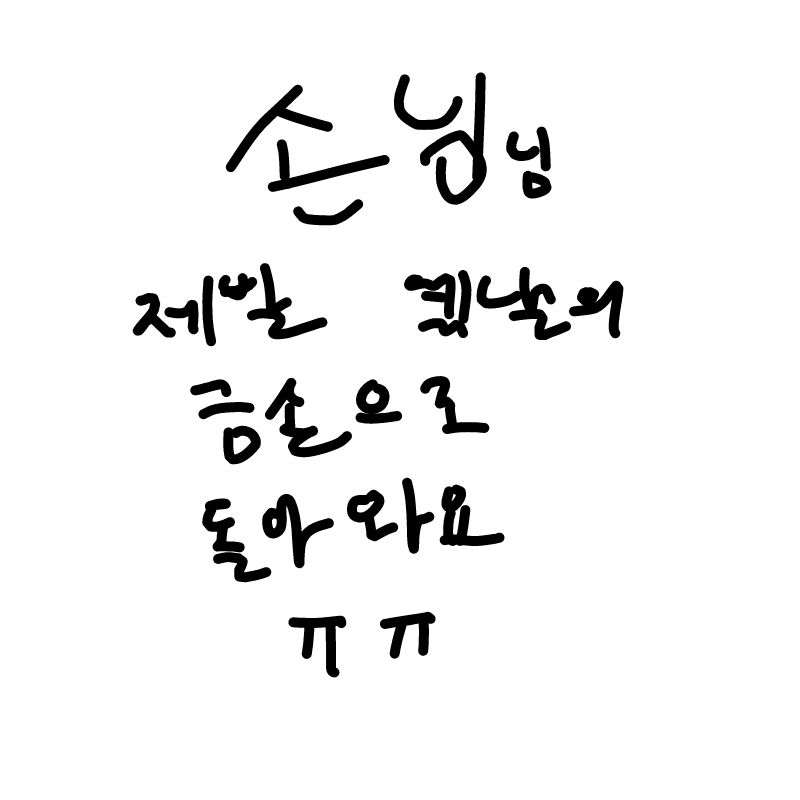 손님님
제발 옛날의
금손으로
돌아와요
ㅠㅠ